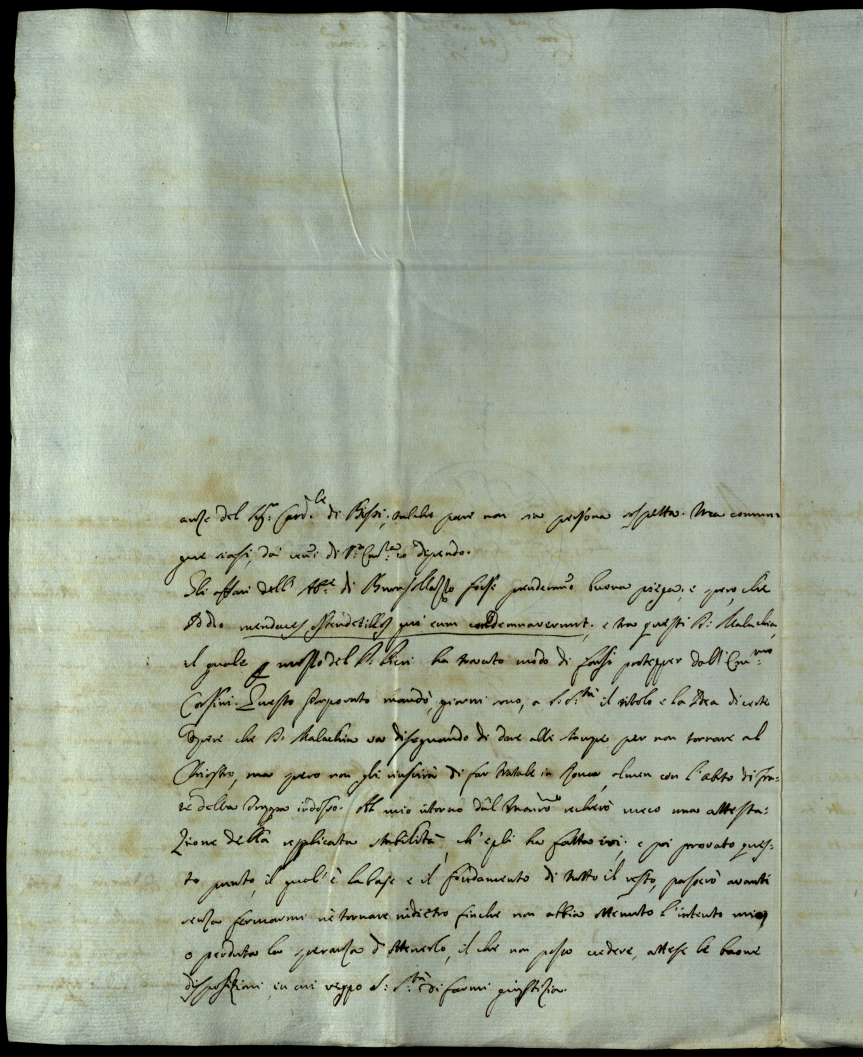 anze del Sig.r Card.le di Bissi, talche pare non sia persona sospetta. Ma comun=
que siasi, dai cenni di V.ra Em.za io dipendo.
Gli affari dell' Ab.e di Buonsollazzo forse prenderanno buona piega, e spero, che
Iddio mendaces ostendet illos qui eum condemnaverunt, e tra questi D. Malachia,
il quale per mezzo del P. Pieri ha trovato modo di farsi protegger dall' Em.mo
Corsini. Questo Porporato mandò, giorni sono, a S. S.tà il titolo e la Idea di certe
Opere che D. Malachia va disegnando di dare alle stampe per non tornare al
Chiostro, ma spero non gli riuscirà di far Natale in Roma, almen con l'abito di Fra=
te della Trappa indosso. Al mio ritorno dal recherò meco una attesta=
zione della replicata stabilità, ch'egli ha fatta ivi; e poi provato ques=
to punto, il qual' è la base e il fondamento di tutto il resto, passerò avanti
senza fermarmi nè tornare indietro finche non abbia ottenuto l'intento mio,
o perduta la speranza d'ottenerlo, il che non posso credere, attese le buone
disposizioni, in cui veggo S. S.tà di farmi giustizia.